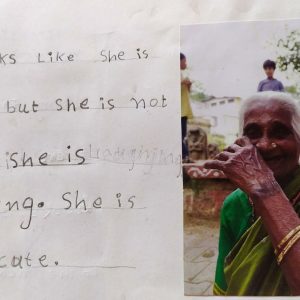 ks Like She is
but She is not
she is
ng. She is
cute.